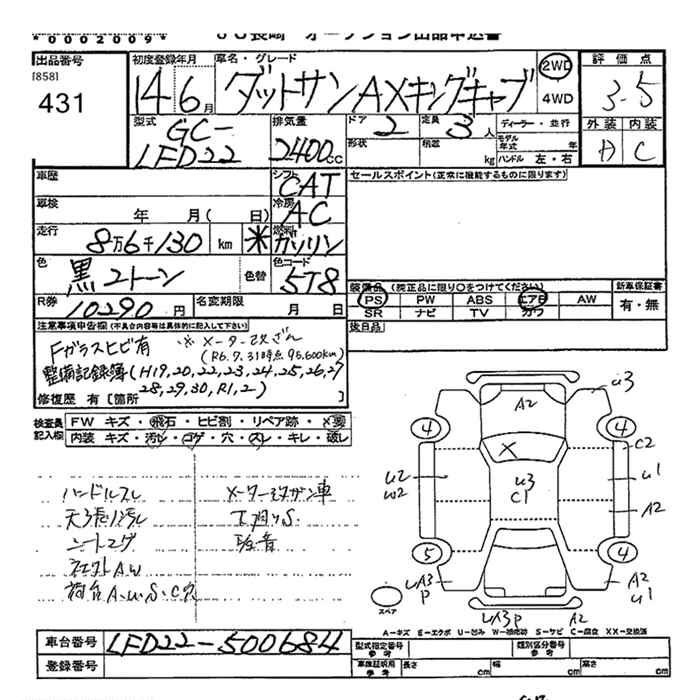 *0002009*
JU長崎 オークション出品申込書
出品番号
[858]
431
初度登録年月
14年6月
車名・グレード
ダットサンAXキングキャブ
2WD
4WD
評価点
3.5
外装 内装
A C
型式
GC-
LFD22
排気量
2400cc
ドア
2
定員
3人
形状
積載
kg
ディーラー・並行
モデル年式 年
ハンドル 左・右
車歴
シフト
CAT
車検
年 月( 日)
冷房
AC
走行
8万6千130 km
※
燃料
ガソリン
色
黒2トーン
色替
色コード
5T8
R券
10290円
名変期限
月 日
セールスポイント(正常に機能するものに限ります)
装備品 (※純正品に限り○をつけてください)
PS PW ABS エアB AW
SR ナビ TV カワ
新車保証書
有・無
後日品
注意事項申告欄(不具合内容等は具体的に記入して下さい)
Fガラスヒビ有 ※メーター改ざん
(R6.7.31時点 95,600km)
整備記録簿(H19,20,22,23,24,25,26,27
28,29,30,R1,2)
修復歴 有[箇所 ]
検査員記入欄
FW キズ・飛石・ヒビ割・リペア跡・×要
内装 キズ・汚レ・コゲ・穴・スレ・キレ・破レ
ハンドルスレ
メーター改ザン車
天張リ汚レ
下廻りS.
シートコゲ
異音
社外AW
荷台A.W.S.C穴
u3
A2
4
4
X
C2
u3
C1
u2
w2
u1
A2
5
4
uA3
P
A2
u1
スペア
uA3P
A2
A-キズ E-エクボ U-凹み W-補修跡 S-サビ C-腐食 XX-交換済
車台番号
LFD22-500684
登録番号
型式指定番号
参考
類別区分番号
参考
車庫証明用
参考
長さ cm
幅 cm
高さ cm